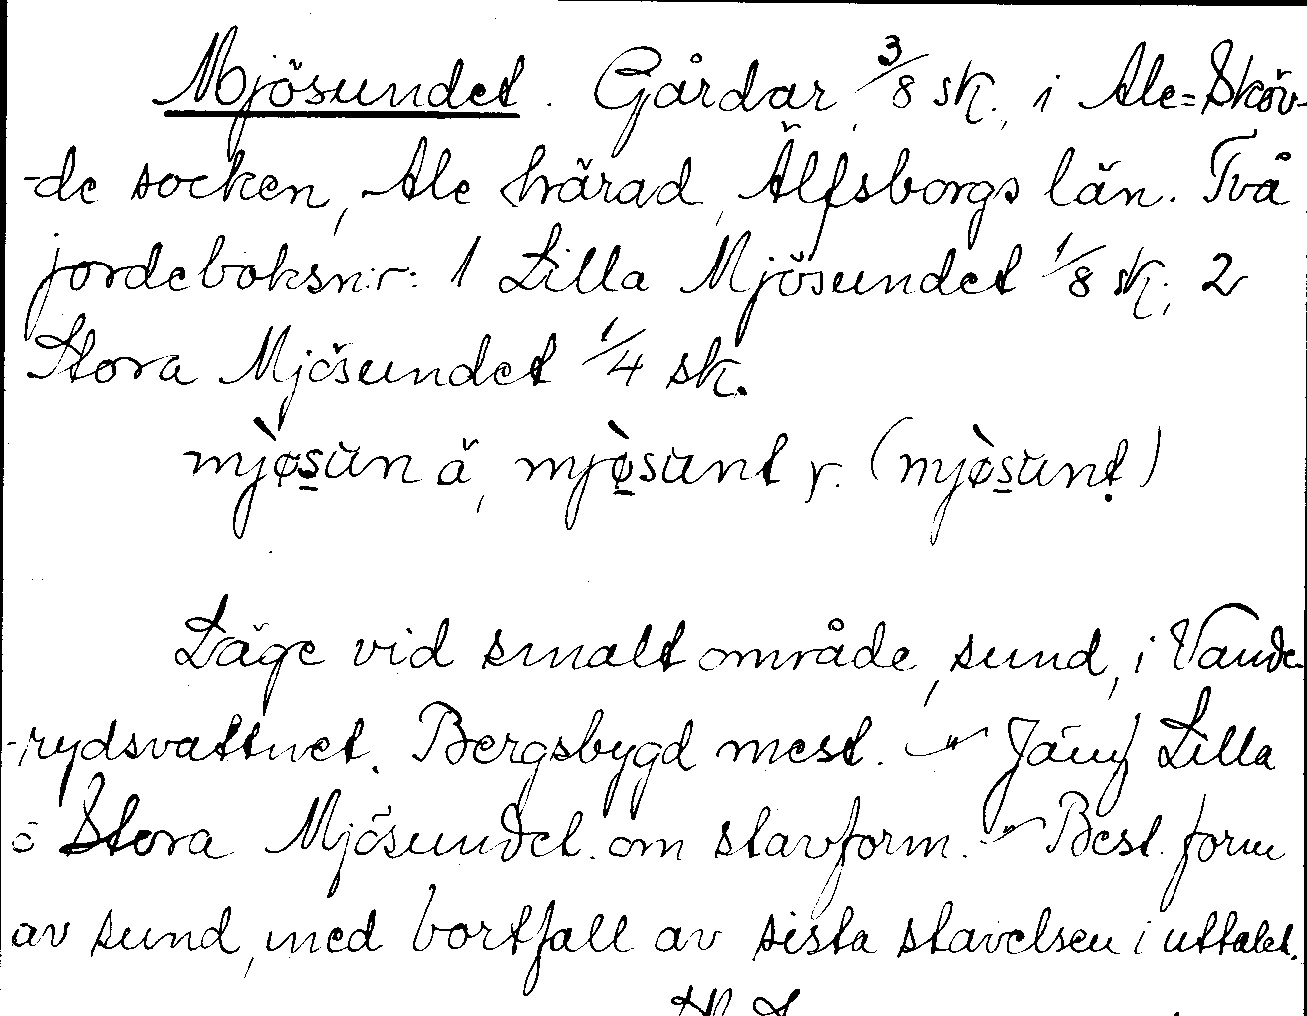 Mjösundet. Gårdar, 3/8 sk., i Ale=Sköv-
-de socken, Ale härad, Älfsborgs län. Två
jordeboksn:r: 1 Lilla Mjösundet 1/8 sk; 2
Stora Mjösundet 1/4 sk.
mjòsun ä, mjòsunt y. (mjòsunt)
Läge vid smalt område, sund, i Vande-
-rydsvattnet. Bergsbygd mest. –"– Jämf Lilla
o Stora Mjösundet om stavform. –"– Best. form
av sund, med bortfall av sista stavelsen i uttalet.